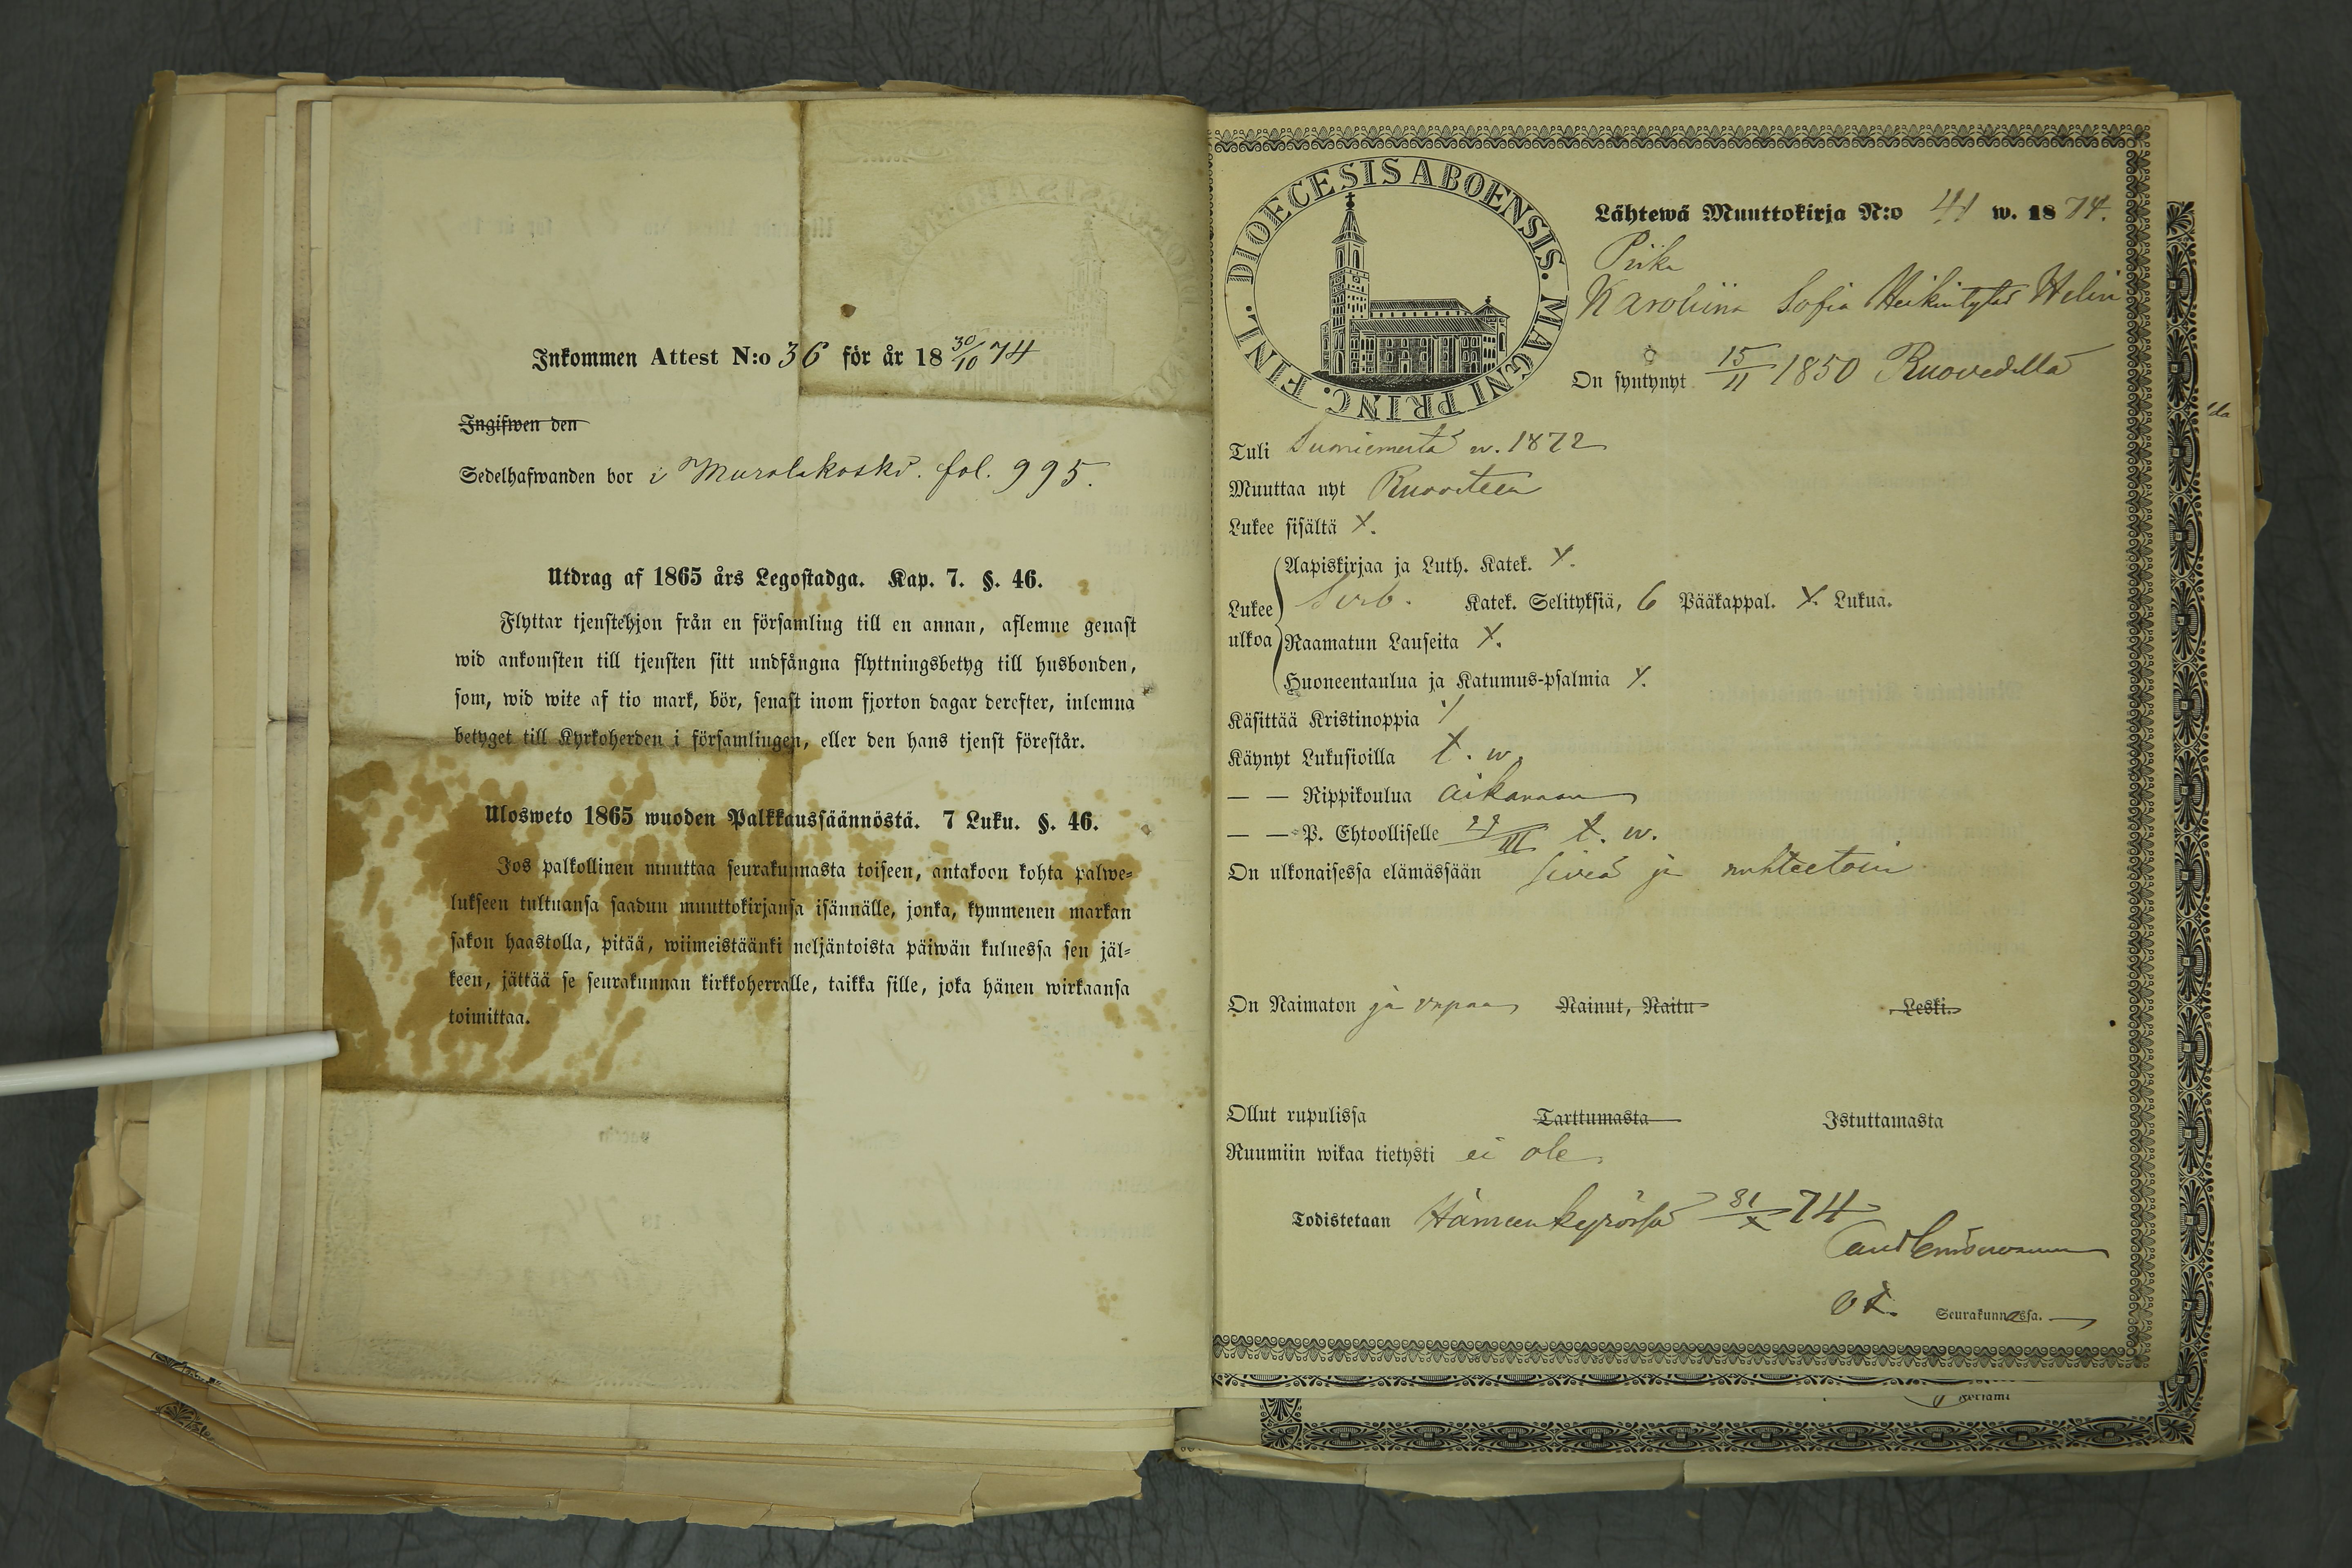 Inkommen Attest N:o 36 för år 18 30/10 74
Ingifwen den
Sedelhafwanden bor i Murolekoski. fol. 995.
Utdrag af 1865 års Legostadga. Kap. 7. §. 46.
Flyttar tjenstehjon från en församling till en annan, aflemne genast
wid ankomsten till tjensten sitt undfångna flyttningsbetyg till husbonden,
som, wid wite af tio mark, bör, senast inom fjorton dagar derefter, inlemna
betyget till Kyrkoherden i församlingen, eller den hans tjenst förestår.
Ulosweto 1865 wuoden Palkkaussäännöstä. 7 Luku. §. 46.
Jos palkollinen muuttaa seurakunnasta toiseen, antakoon kohta palwe-
lukseen tultuansa saadun muuttokirjansa isännälle, jonka, kymmenen markan
sakon haastolla, pitää, wiimeistäänki neljäntoista päiwän kuluessa sen jäl-
keen, jättää se seurakunnan kirkkoherralle, taikka sille, joka hänen wirkaansa
toimittaa.
DIOECESIS ABOENSIS. MAGNI PRINC. FINL.
Lähtewä Muuttokirja N:o 41 w. 1874.
Piika
Karoliina Sofia Heikintytär Helin
On syntynyt 15/11 1850 Ruovedellä
Tuli Suoniemeltä w. 1872
Muuttaa nyt Ruoveteen
Lukee sisältä x.
Lukee ulkoa
Aapiskirjaa ja Luth. Katek. x.
Sveb. Katek. Selityksiä, 6 Pääkappal. x. Lukua.
Raamatun Lauseita x.
Huoneentaulua ja Katumus-psalmia x.
Käsittää Kristinoppia
Käynyt Lukusioilla t. w.
— — Rippikoulua aikanaan
— — P. Ehtoolliselle /III t. w.
On ulkonaisessa elämässään siveä ja nuhteetoin
On Naimaton ja vapaa Nainut, Naitu Leski.
Ollut rupulissa Tarttumasta Istuttamasta
Ruumiin wikaa tietysti ei ole
Todistetaan Hämeenkyrössä 31/X 74
Seurakunnassa.